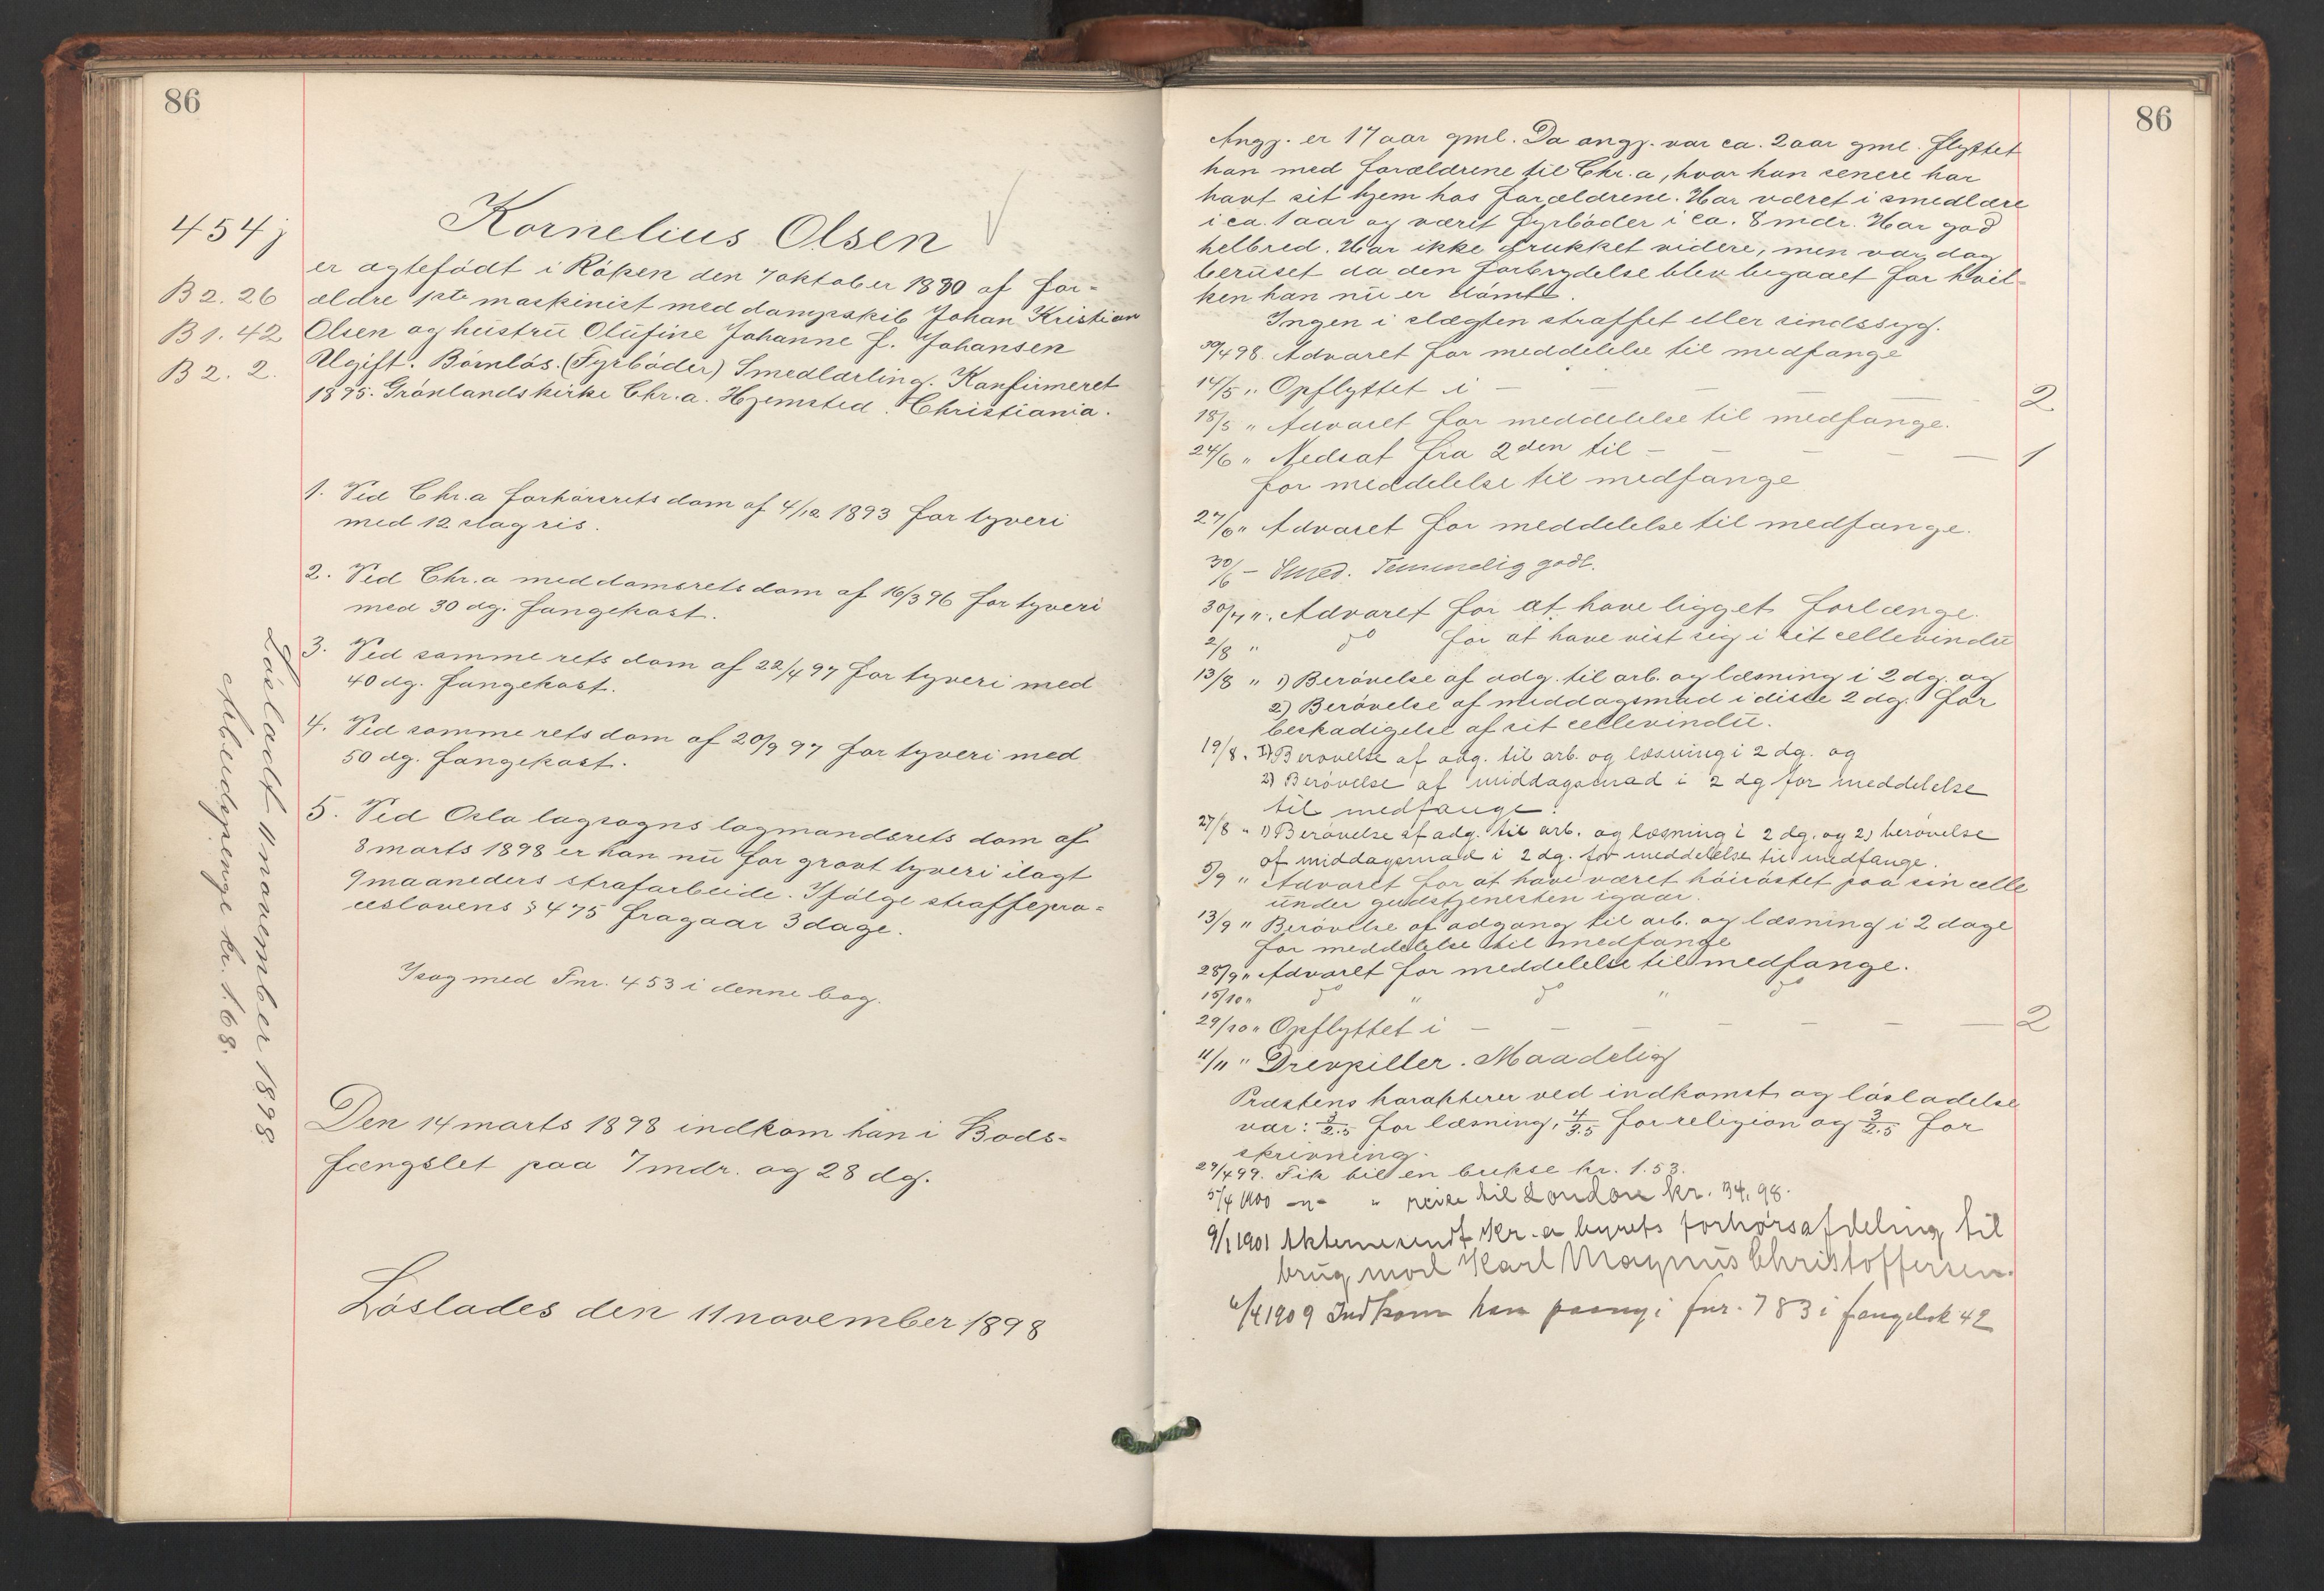 86
454j
B 2. 26
B 1. 42
B 2. 2.
Kornelius Olsen
er ægtefödt i Röken den 7 oktober 1880 af for-
ældre 1ste maskinist med dampskib Johan Kristian
Olsen og hustru Olufine Johanne f. Johansen
Ugift. Börnlös. (Fyrböder) Smedlærling. Konfirmeret
1895. Grönlands kirke Chr.a. Hjemsted. Christiania.
1. Ved Chr.a forhörsrets dom af 4/12 1893 for tyveri
med 12 slag ris.
2. Ved Chr.a meddomsrets dom af 16/3 96 for tyveri
med 30 dg. fangekost.
3. Ved samme rets dom af 22/4 97 for tyveri med
40 dg. fangekost.
4. Ved samme rets dom af 20/9 97 for tyveri med
50 dg. fangekost.
5. Ved Oslo lagsogns lagmandsrets dom af
8 marts 1898 er han nu for grovt tyveri ilagt
9 maaneders strafarbeide. Ifölge straffepro-
ceslovens § 475 fragaar 3 dage.
I sag med Fnr. 453 i denne bog.
Den 14 marts 1898 indkom han i Bods-
fængslet paa 7 mdr. og 28 dg.
Löslades den 11 november 1898
Lösladt 11 november 1898.
Arbeidspenge kr. 1.68.
86
Angj. er 17 aar gml. Da angj. var ca. 2 aar gml. flyttet
han med forældrene til Chr.a, hvor han senere har
havt sit hjem hos forældrene. Har været i smedlære
i ca. 1 aar og været fyrböder i ca. 8 mdr. Har god
helbred. Har ikke drukket videre, men var dog
beruset da den forbrydelse blev begaaet for hvil-
ken han nu er dömt.
Ingen i slægten straffet eller sindssyg.
30/4 98. Advaret for meddelelse til medfange
14/5 " Opflyttet i — — — — 2
18/5 " Advaret for meddelelse til medfange.
24/6 " Nedsat fra 2den til — — — — 1
for meddelelse til medfange
27/6 " Advaret for meddelelse til medfange.
30/6 – Smed. Temmelig godt.
30/7 " Advaret for at have ligget forlænge.
2/8 " do for at have vist sig i sit cellevindu
13/8 " 1) Berövelse af adg. til arb. og læsning i 2 dg. og
2) Berövelse af middagsmad i disse 2 dg. for
beskadigelse af sit cellevindu.
19/8 " 1) Berövelse af adg. til arb. og læsning i 2 dg. og
2) Berövelse af middagsmad i 2 dg for meddelelse
til medfange.
27/8 " 1) Berövelse af adg. til arb. og læsning i 2 dg. og 2) berövelse
af middagsmad i 2 dg. for meddelelse til medfange.
5/9 " Advaret for at have været höiröstet paa sin celle
under gudstjenesten igaar.
13/9 " Berövelse af adgang til arb. og læsning i 2 dage
for meddelelse til medfange
28/9 " Advaret for meddelelse til medfange.
15/10 " do " do " do
29/10 " Opflyttet i — — — — — — — 2
11/11 " Drevpiller. Maadelig
Præstens karakterer ved indkomst og lösladelse
var: 3/2.5 for læsning, 4/3.5 for religion og 3/2.5 for
skrivning.
29/4 99. Fik til en bukse kr. 1.53.
5/4 1900 –"– " reise til London kr. 34,98.
9/1 1901 Akterne sendt Kr.a byrets forhörsafdeling til
brug mod Karl Magnus Christoffersen.
6/4 1909 Indkom han paany i fnr. 783 i fangebok 42